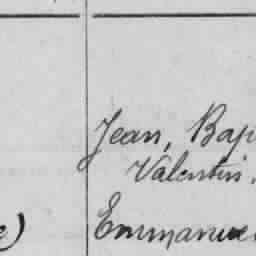 Jean, Bap
Valentin.
e) Emmanue